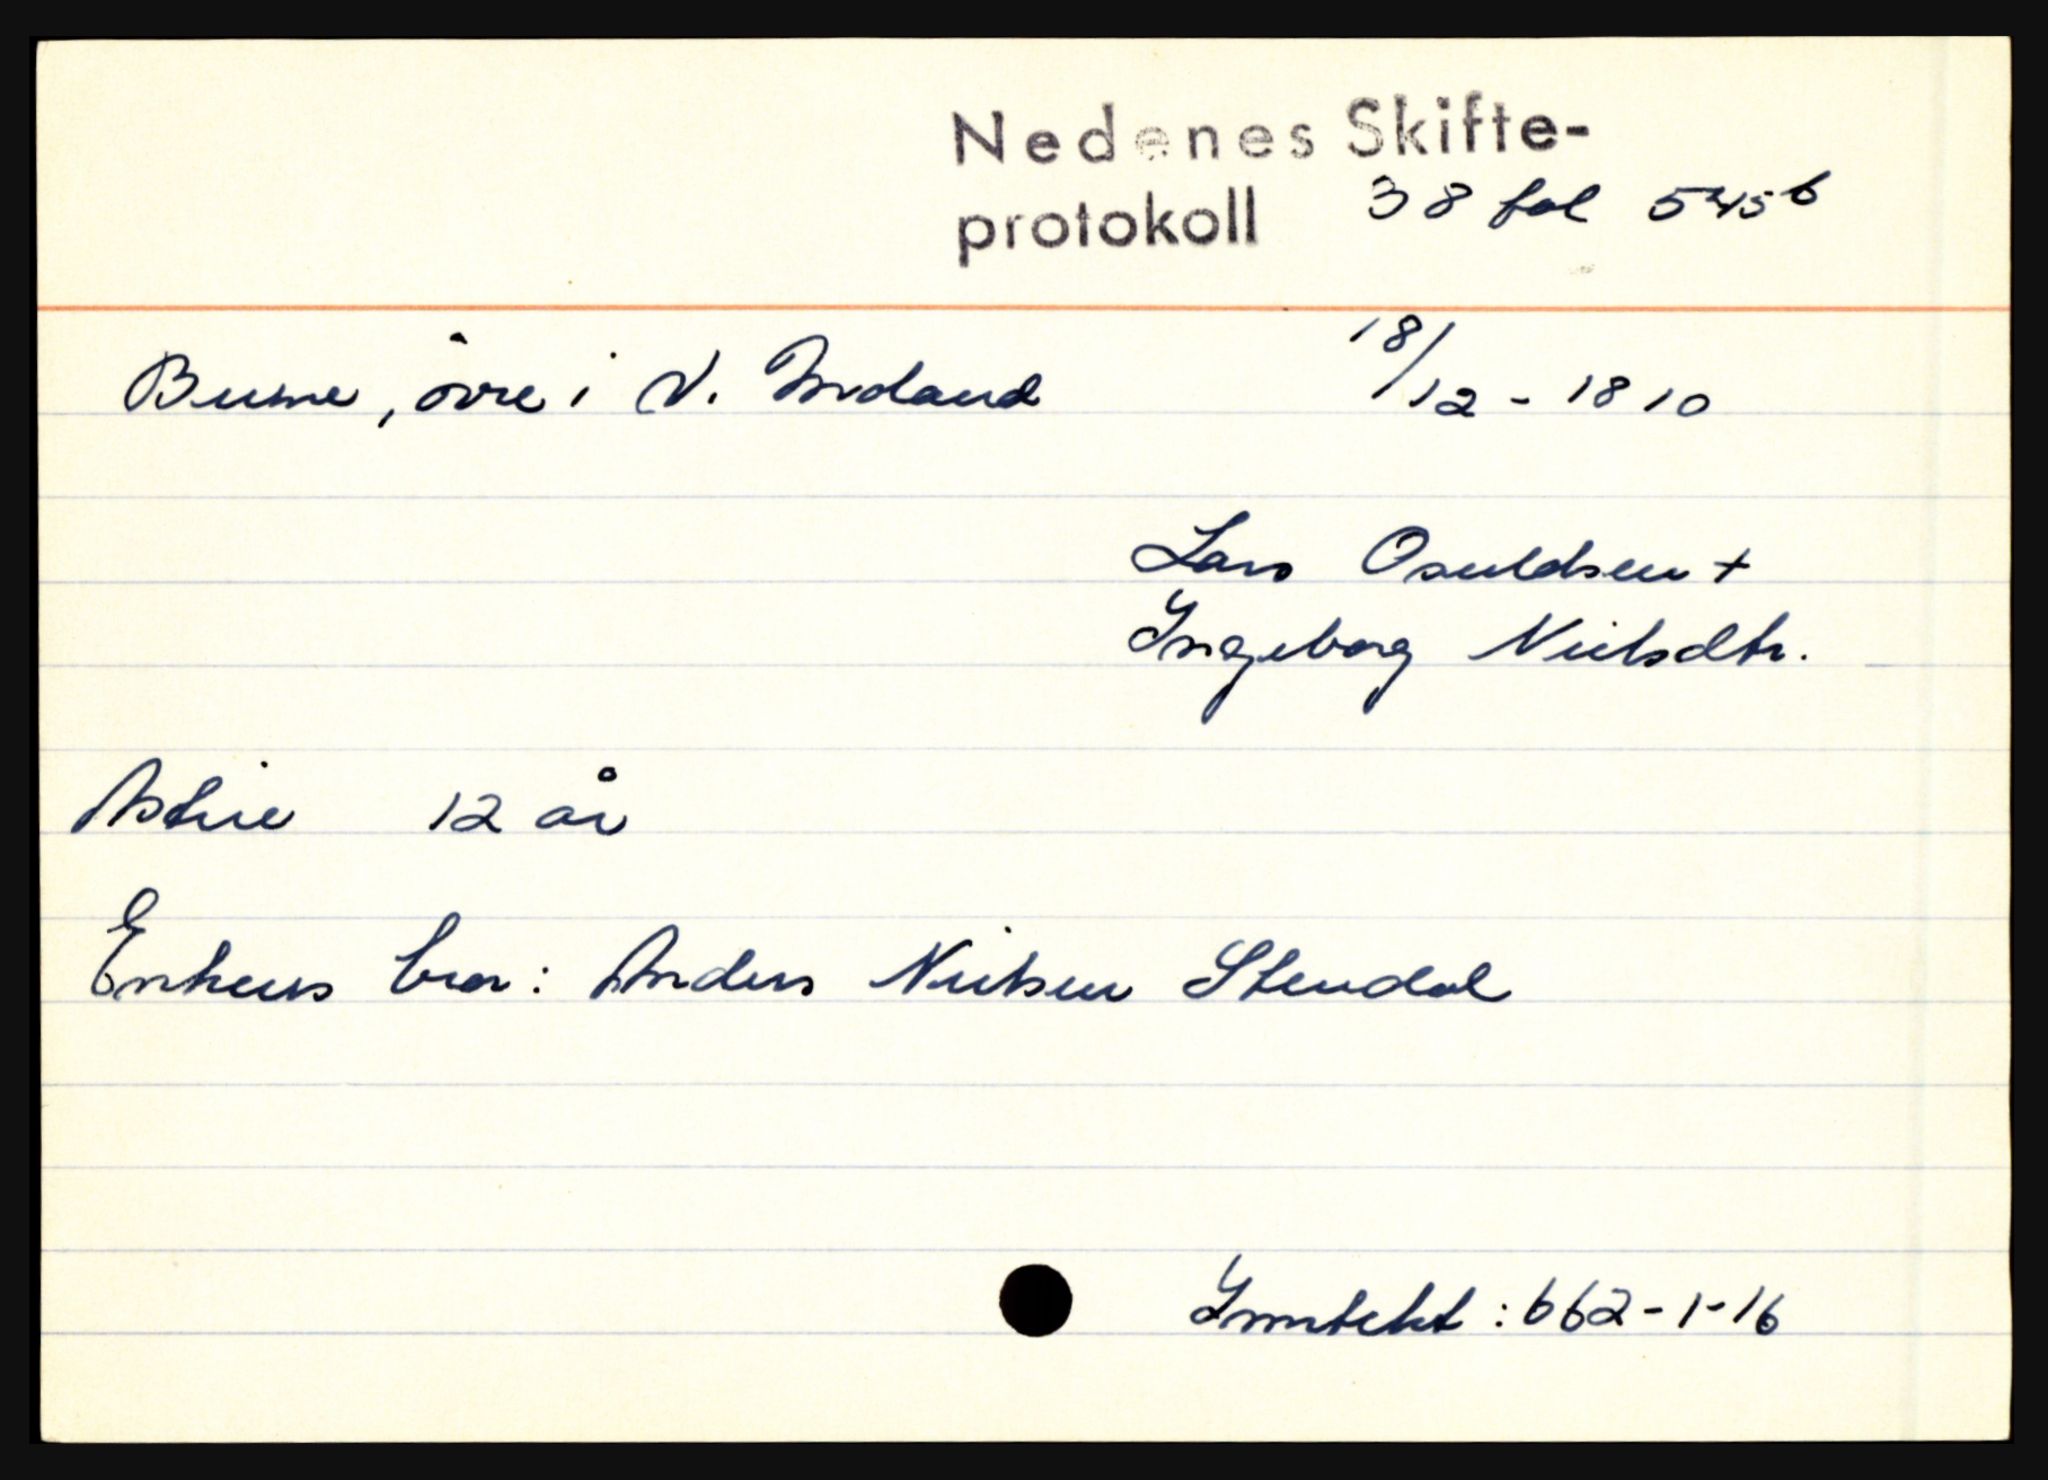 Nedenes Skifte-
protokoll 38 fol 545b
Bume, övre i V. Moland 18/12-1810
Lars Osuldsen +
Ingeborg Nielsdtr.
Astrie 12 år
Enkens bror: Anders Nielsen Stendal
Inntekt: 662-1-16